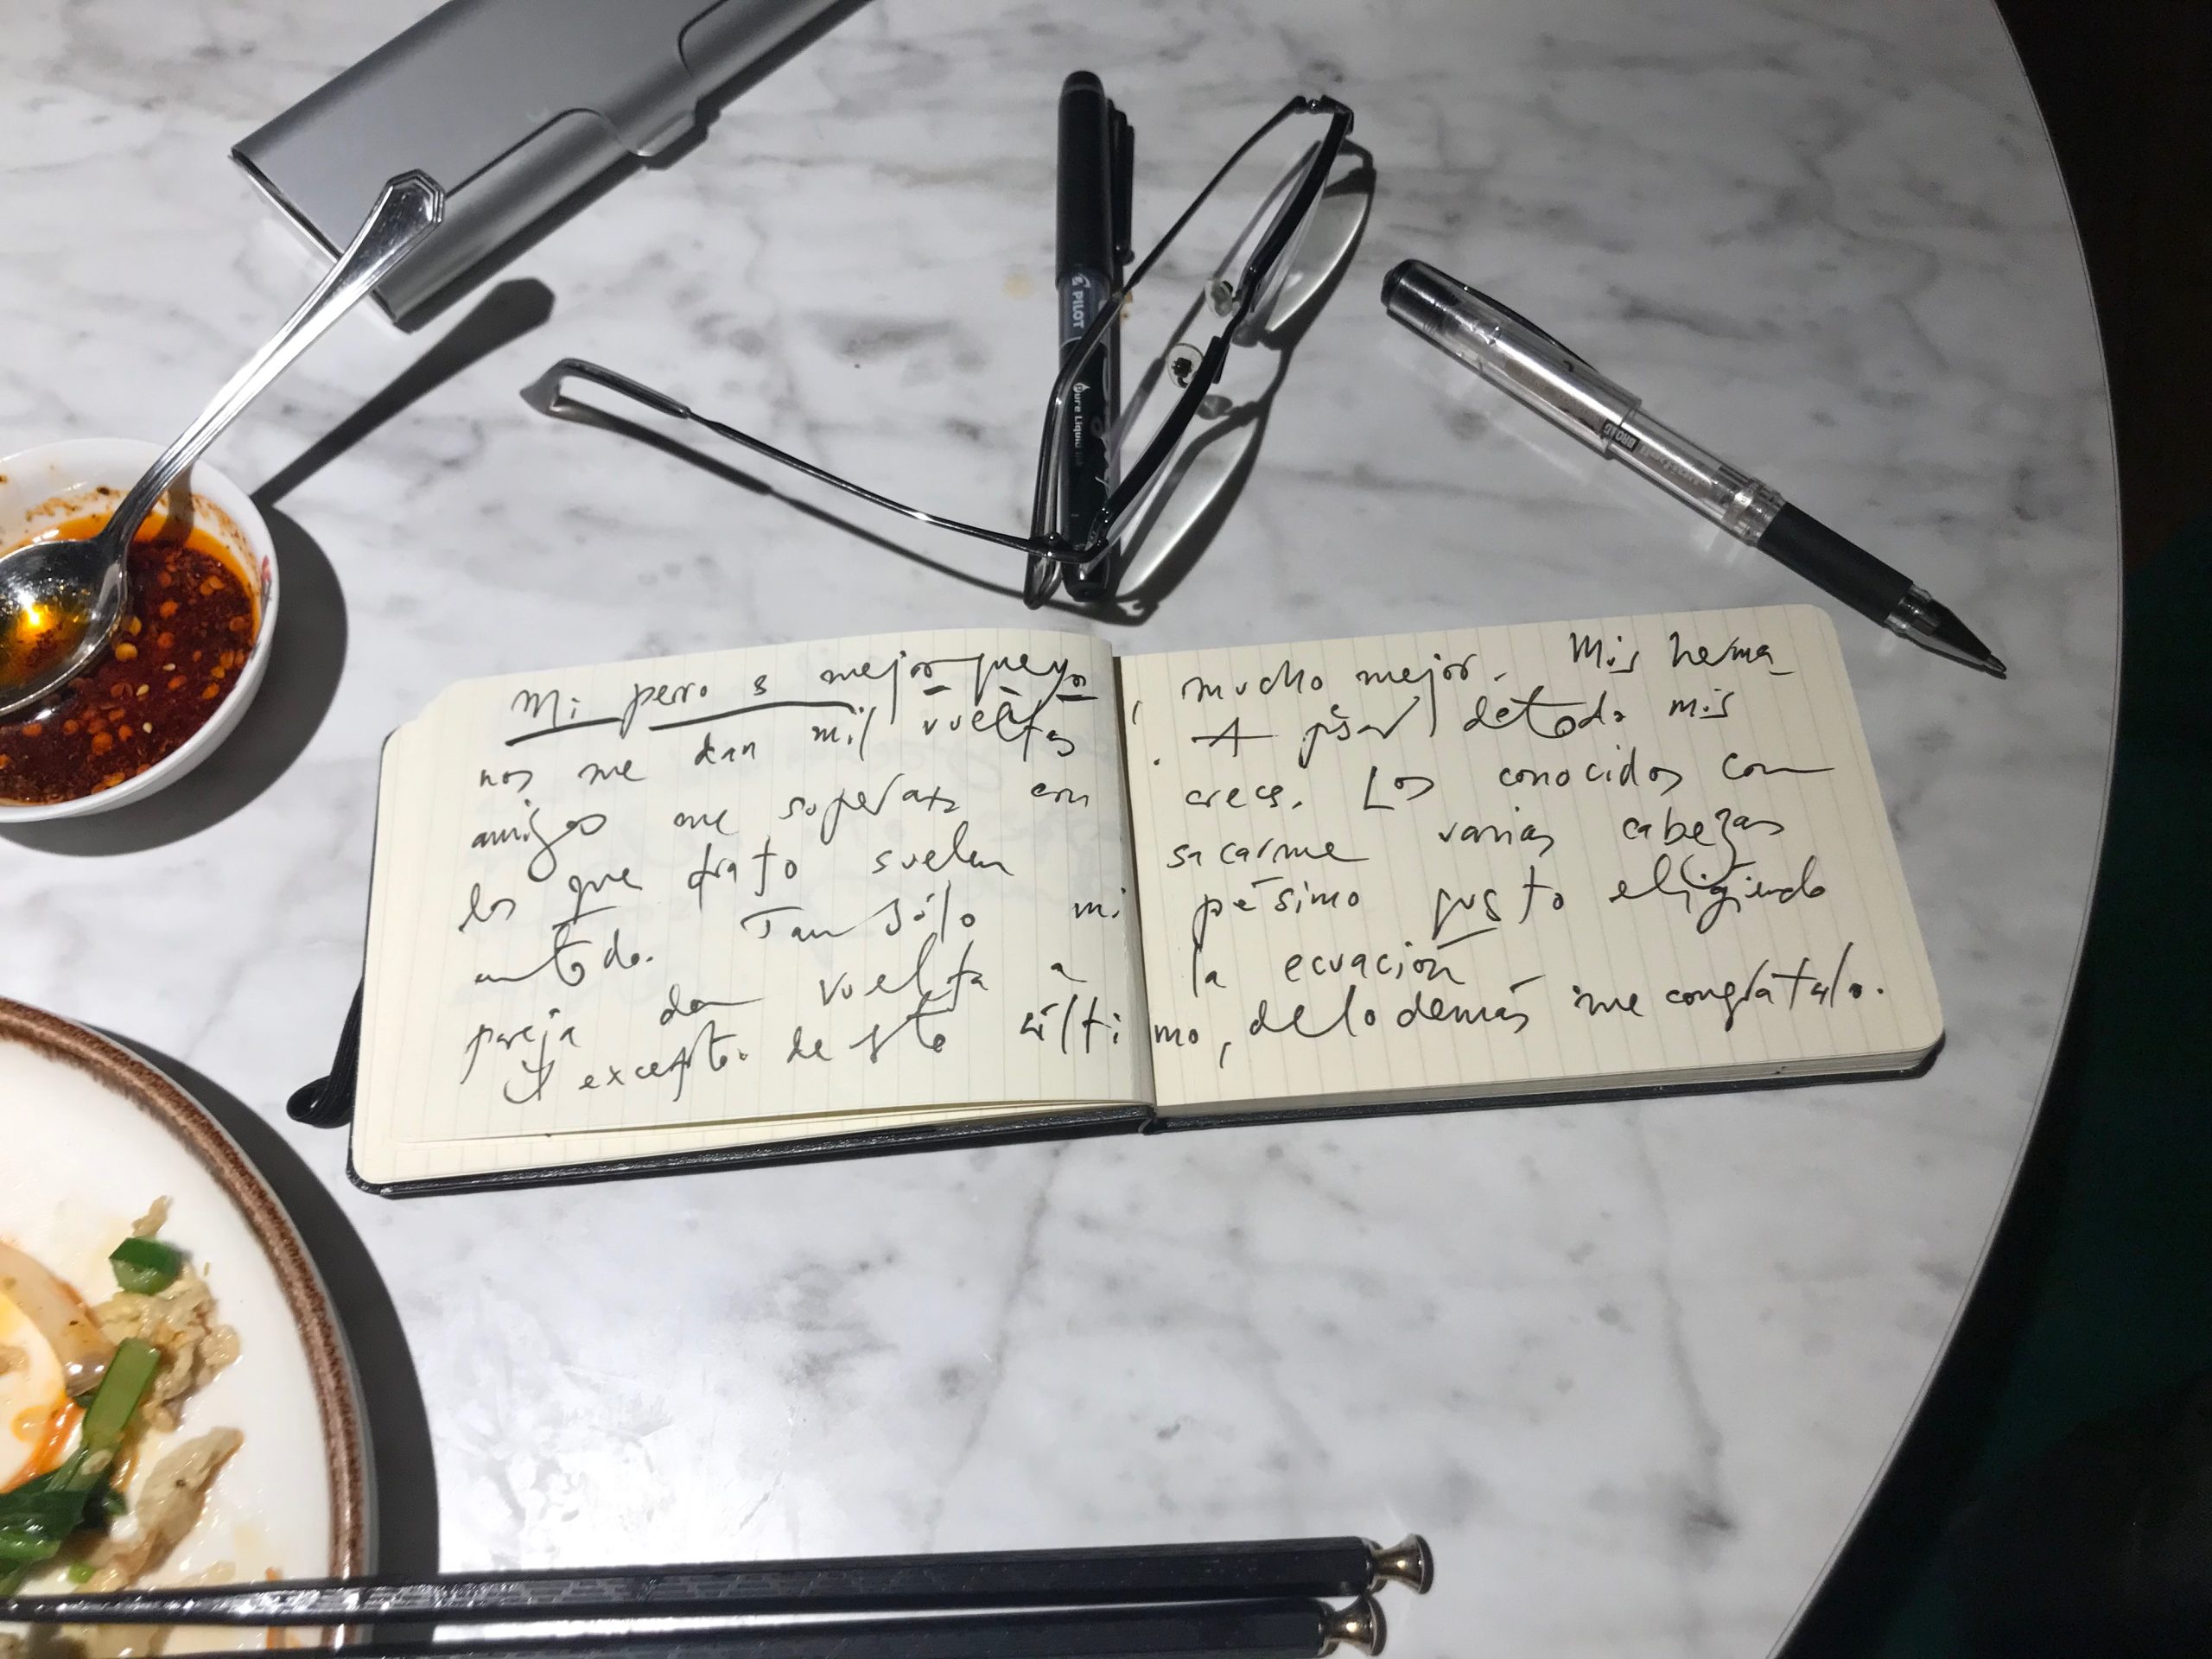 PILOT
Pure Liquid Ink
BROAD
Mi perro es mejor que yo, mucho mejor. Mis herma-
nos me dan mil vueltas. A pesar de todo mis
amigos me superan con creces. Los conocidos con
los que trato suelen sacarme varias cabezas
en todo. Tan sólo mi pésimo gusto eligiendo
pareja dan vuelta a la ecuación
Y excepto de este último, de lo demás me congratulo.